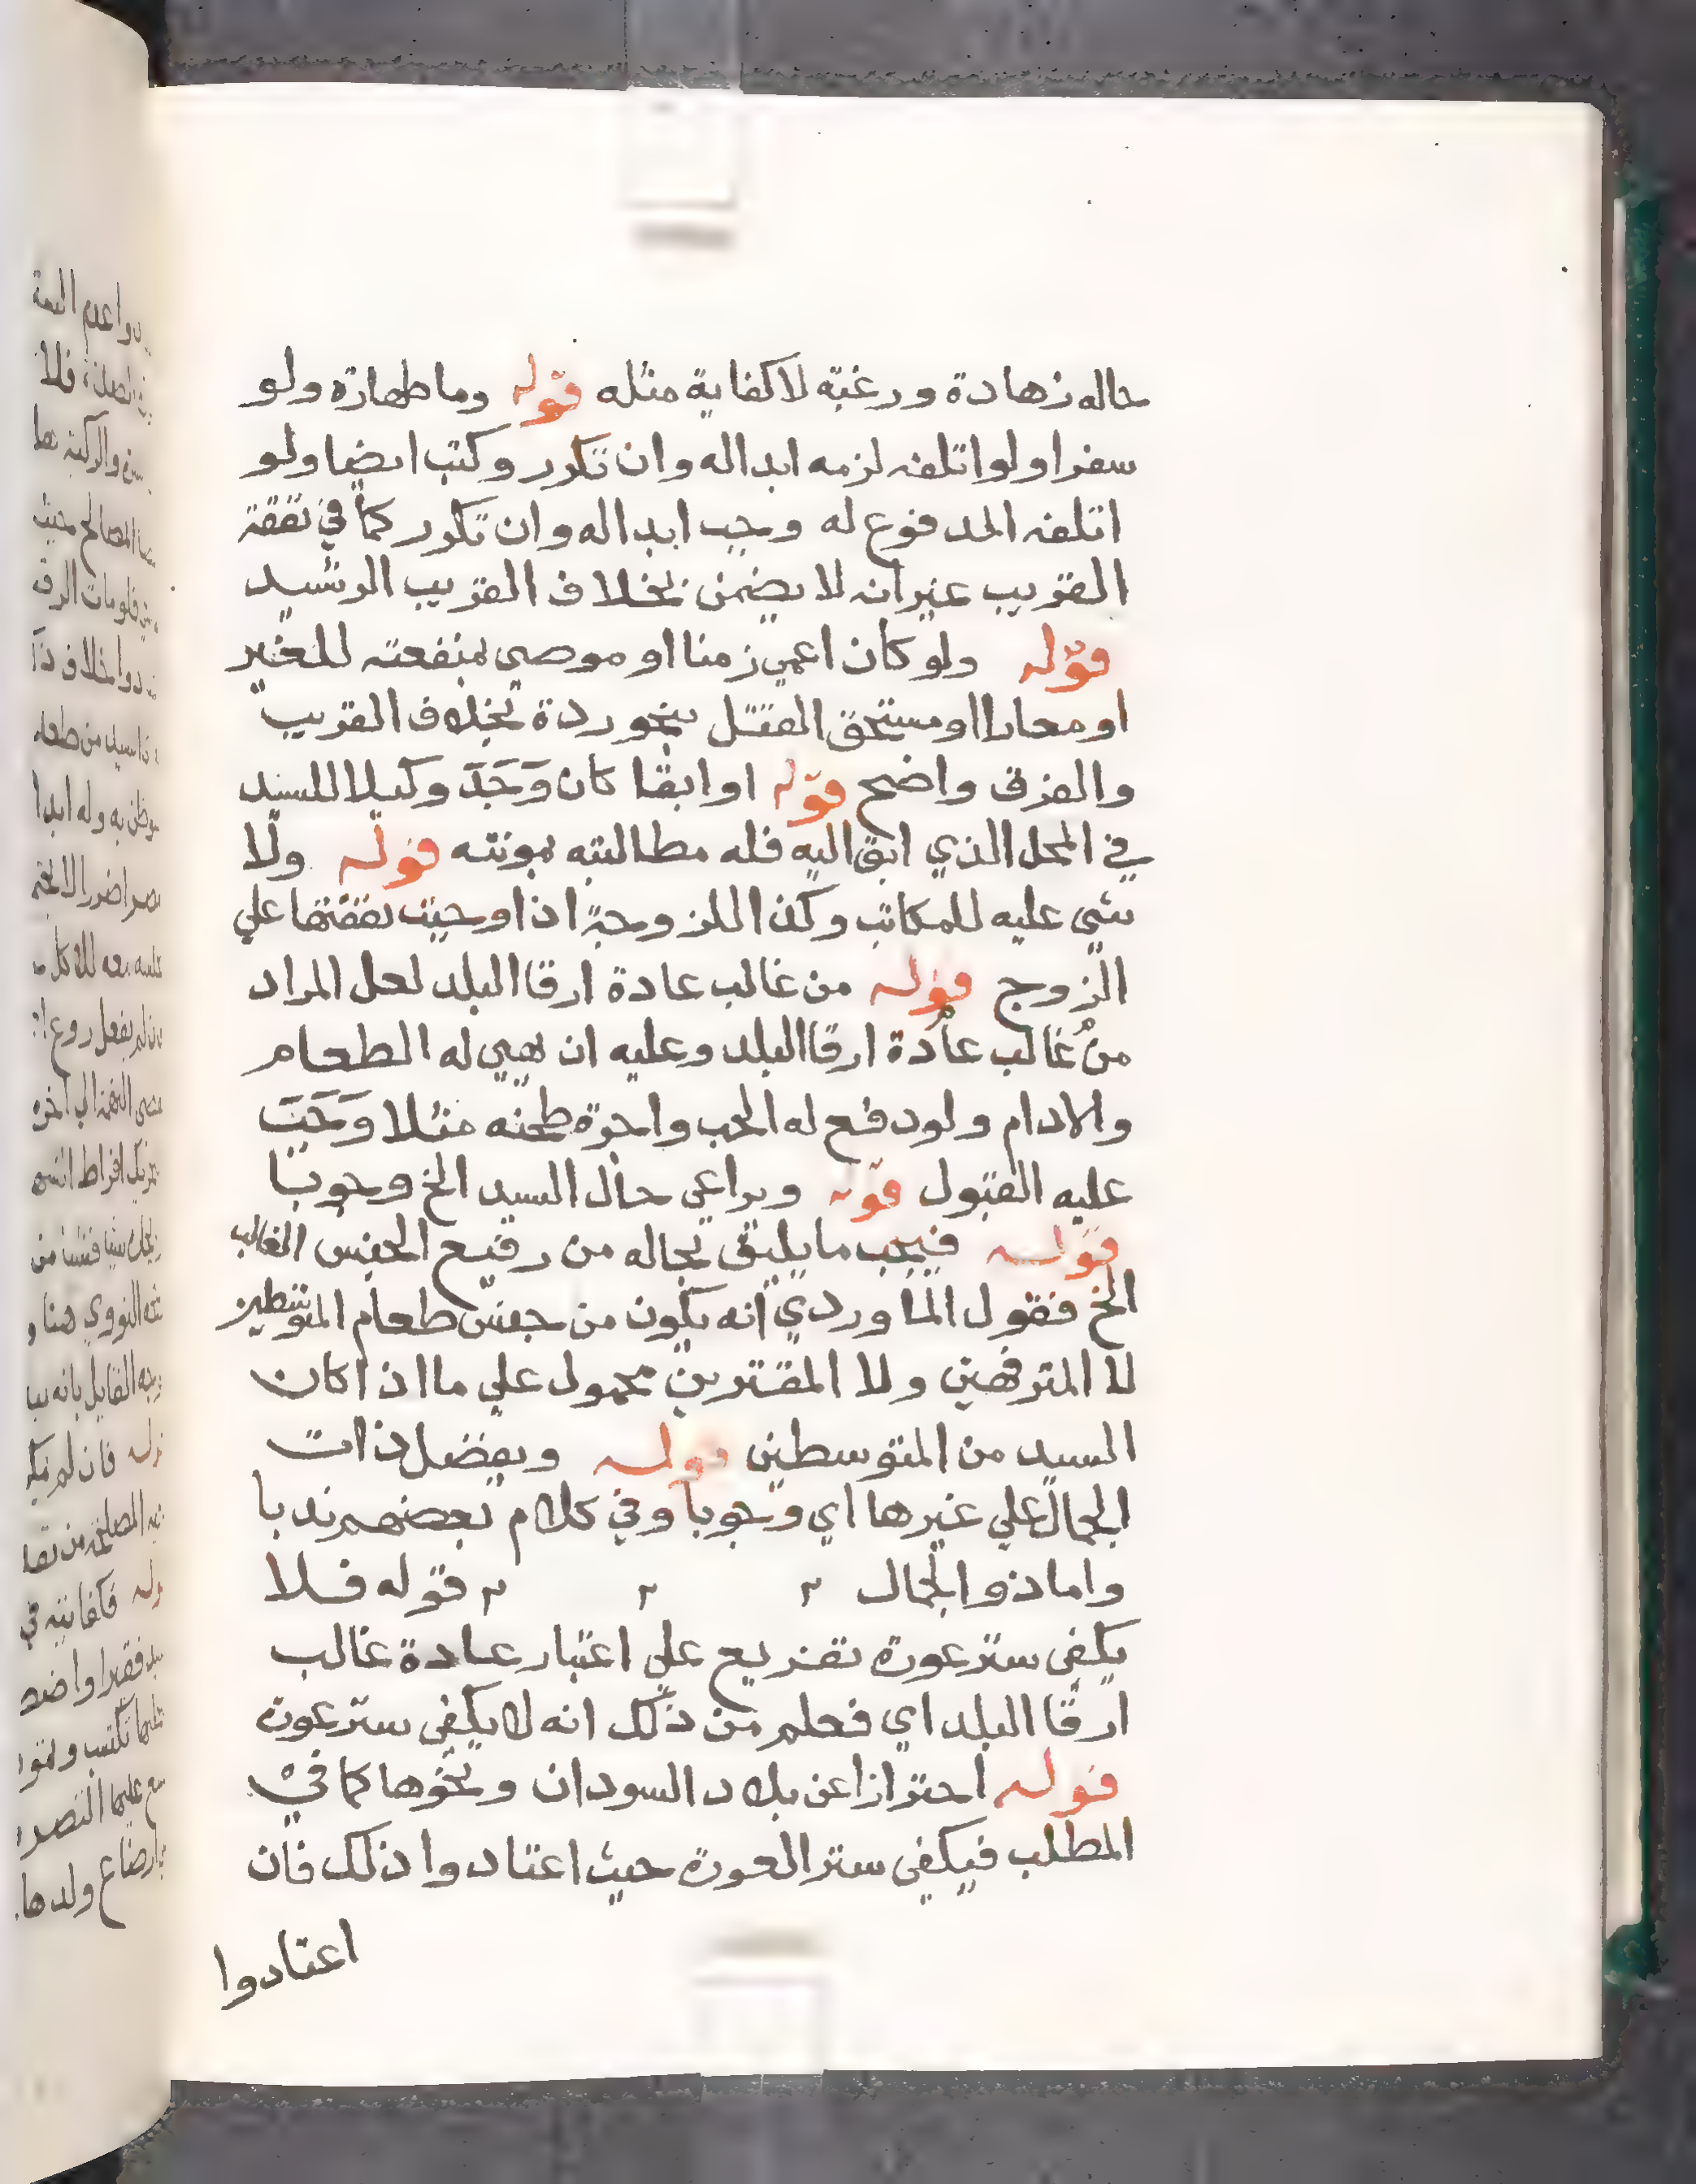 حاله زهادة ورغبة لا كفاية مثله قوله وما طهارة ولو
سفرا ولو اتلفه لزمه ابداله وان تكرر وكتب ايضا ولو
اتلفه المدفوع له وجب ابداله وان تكرر كما في نفقة
القريب غير انه لا يضمن بخلاف القريب الرشيد
قوله ولو كان اعمي زمنا او موصي بمنفعته للغير
او معارا او مستحق القتل بنحو ردة بخلاف القريب
والفرق واضح قوله او ابقا كان وجد وكيلا للسيد
في المحل الذي ابق اليه فله مطالبته بمونته قوله ولا
شي عليه للمكاتب وكذا للزوجة اذا وجبت نفقتها علي
الزوج قوله من غالب عادة ارقا البلد لعل المراد
من غالب عادة ارقا البلد وعليه ان يهيي له الطعام
والادام ولو دفع له الحب واجرة طحنه مثلا وجب
عليه القبول قوله ويراعي حال السيد الخ وجوبا
قوله فيجب ما يليق بحاله من رفيع الجنس الغالب
الخ فقول الماوردي انه يكون من جنس طعام المتوسطين
لا المترفهين ولا المقترين محمول علي ما اذا كان
السيد من المتوسطين قوله ويفضل ذات
الجمال علي غيرها اي وجوبا وفي كلام بعضهم ندبا
واما ذو الجمال قوله فلا
يكفي ستر عورة تفريع علي اعتبار عادة غالب
ارقا البلد اي فعلم من ذلك انه لا يكفي ستر عورة
قوله احترازا عن بلاد السودان ونحوها كما في
المطلب فيكفي ستر العورة حيث اعتادوا ذلك فان
اعتادوا